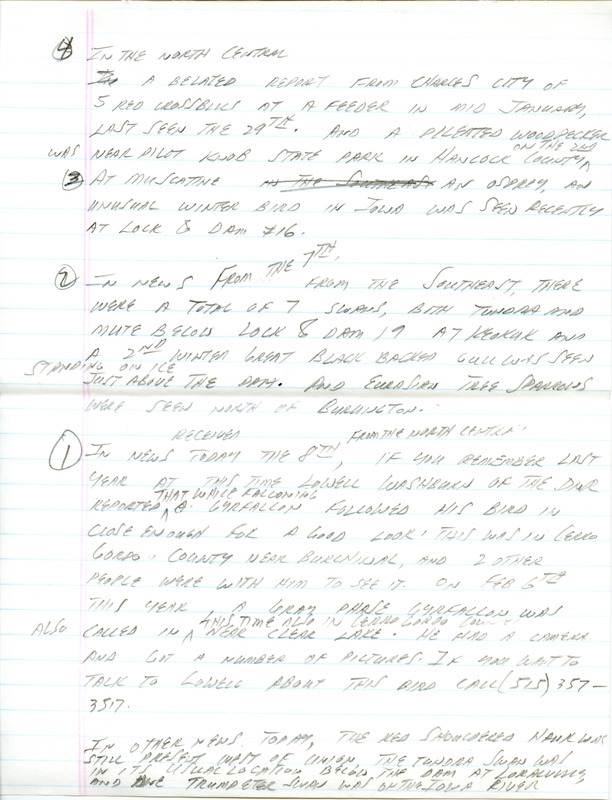 4 IN THE NORTH CENTRAL
A BELATED REPORT FROM CHARLES CITY OF
5 RED CROSSBILLS AT A FEEDER IN MID JANUARY,
LAST SEEN THE 29TH. AND A PILEATED WOODPECKER
ON THE 2ND
WAS NEAR PILOT KNOB STATE PARK IN HANCOCK COUNTY
3 AT MUSCATINE IN THE SOUTHEAST AN OSPREY, AN
UNUSUAL WINTER BIRD IN IOWA WAS SEEN RECENTLY
AT LOCK & DAM #16.
2 IN NEWS FROM THE 7TH, FROM THE SOUTHEAST, THERE
WERE A TOTAL OF 7 SWANS, BOTH TUNDRA AND
MUTE BELOW LOCK & DAM 19 AT KEOKUK AND
A 2ND WINTER GREAT BLACK BACKED GULL WAS SEEN
STANDING ON ICE
JUST ABOVE THE DAM. AND EURASIAN TREE SPARROWS
WERE SEEN NORTH OF BURLINGTON.
RECEIVED FROM THE NORTH CENTRAL
1 IN NEWS TODAY THE 8TH, IF YOU REMEMBER LAST
YEAR AT THIS TIME LOWELL WASHBURN OF THE DNR
THAT WHILE FOLLOWING
REPORTED A GYRFALCON FOLLOWED HIS BIRD IN
CLOSE ENOUGH FOR A GOOD LOOK! THIS WAS IN CERRO
GORDO COUNTY NEAR BURCHINAL, AND 2 OTHER
PEOPLE WERE WITH HIM TO SEE IT. ON FEB 6TH
THIS YEAR A GRAY PHASE GYRFALCON WAS
THIS TIME ALSO IN CERRO GORDO COUNTY
ALSO CALLED IN NEAR CLEAR LAKE. HE HAD A CAMERA
AND GOT A NUMBER OF PICTURES. IF YOU WANT TO
TALK TO LOWELL ABOUT THIS BIRD CALL (515) 357-
3517.
IN OTHER NEWS TODAY, THE RED SHOULDERED HAWK WAS
STILL PRESENT WEST OF UNION, THE TUNDRA SWAN WAS
IN ITS USUAL LOCATION BELOW THE DAM AT CORALVILLE,
AND TRUMPETER SWAN WAS ON THE IOWA RIVER